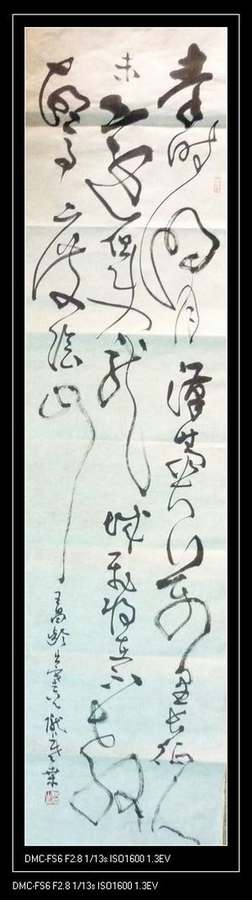 秦時明月漢時關萬里長征人
未還但使龍城飛將在不教
胡馬度陰山
王昌齡出塞
DMC-FS6 F2.8 1/13s ISO1600 1.3EV
DMC-FS6 F2.8 1/13s ISO1600 1.3EV